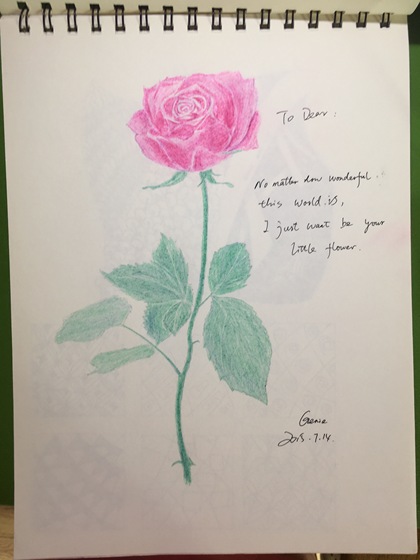 To Dear:
No matter how wonderful
this world is,
I just want be your
little flower.
2015.7.14.